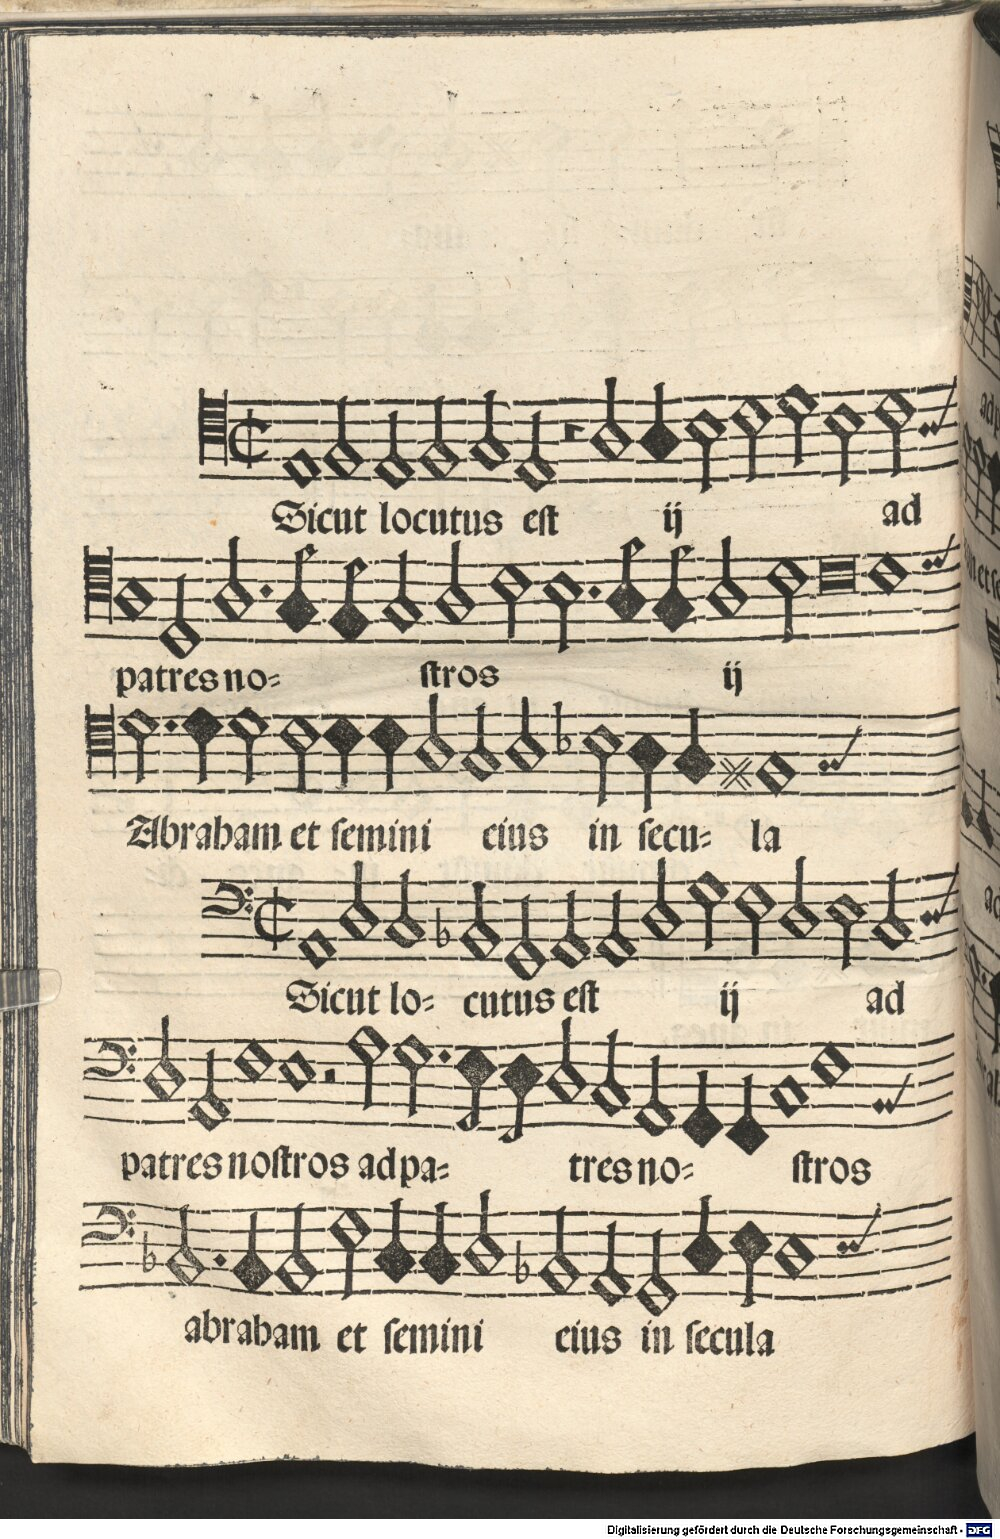 Sicut locutus est ij ad
patres no=
stros ij
Abraham et semini eius in secu= la
Sicut lo= cutus est ij ad
patres nostros ad pa= tres no= stros
abraham et semini eius in secula
Digitalisierung gefördert durch die Deutsche Forschungsgemeinschaft - DFG